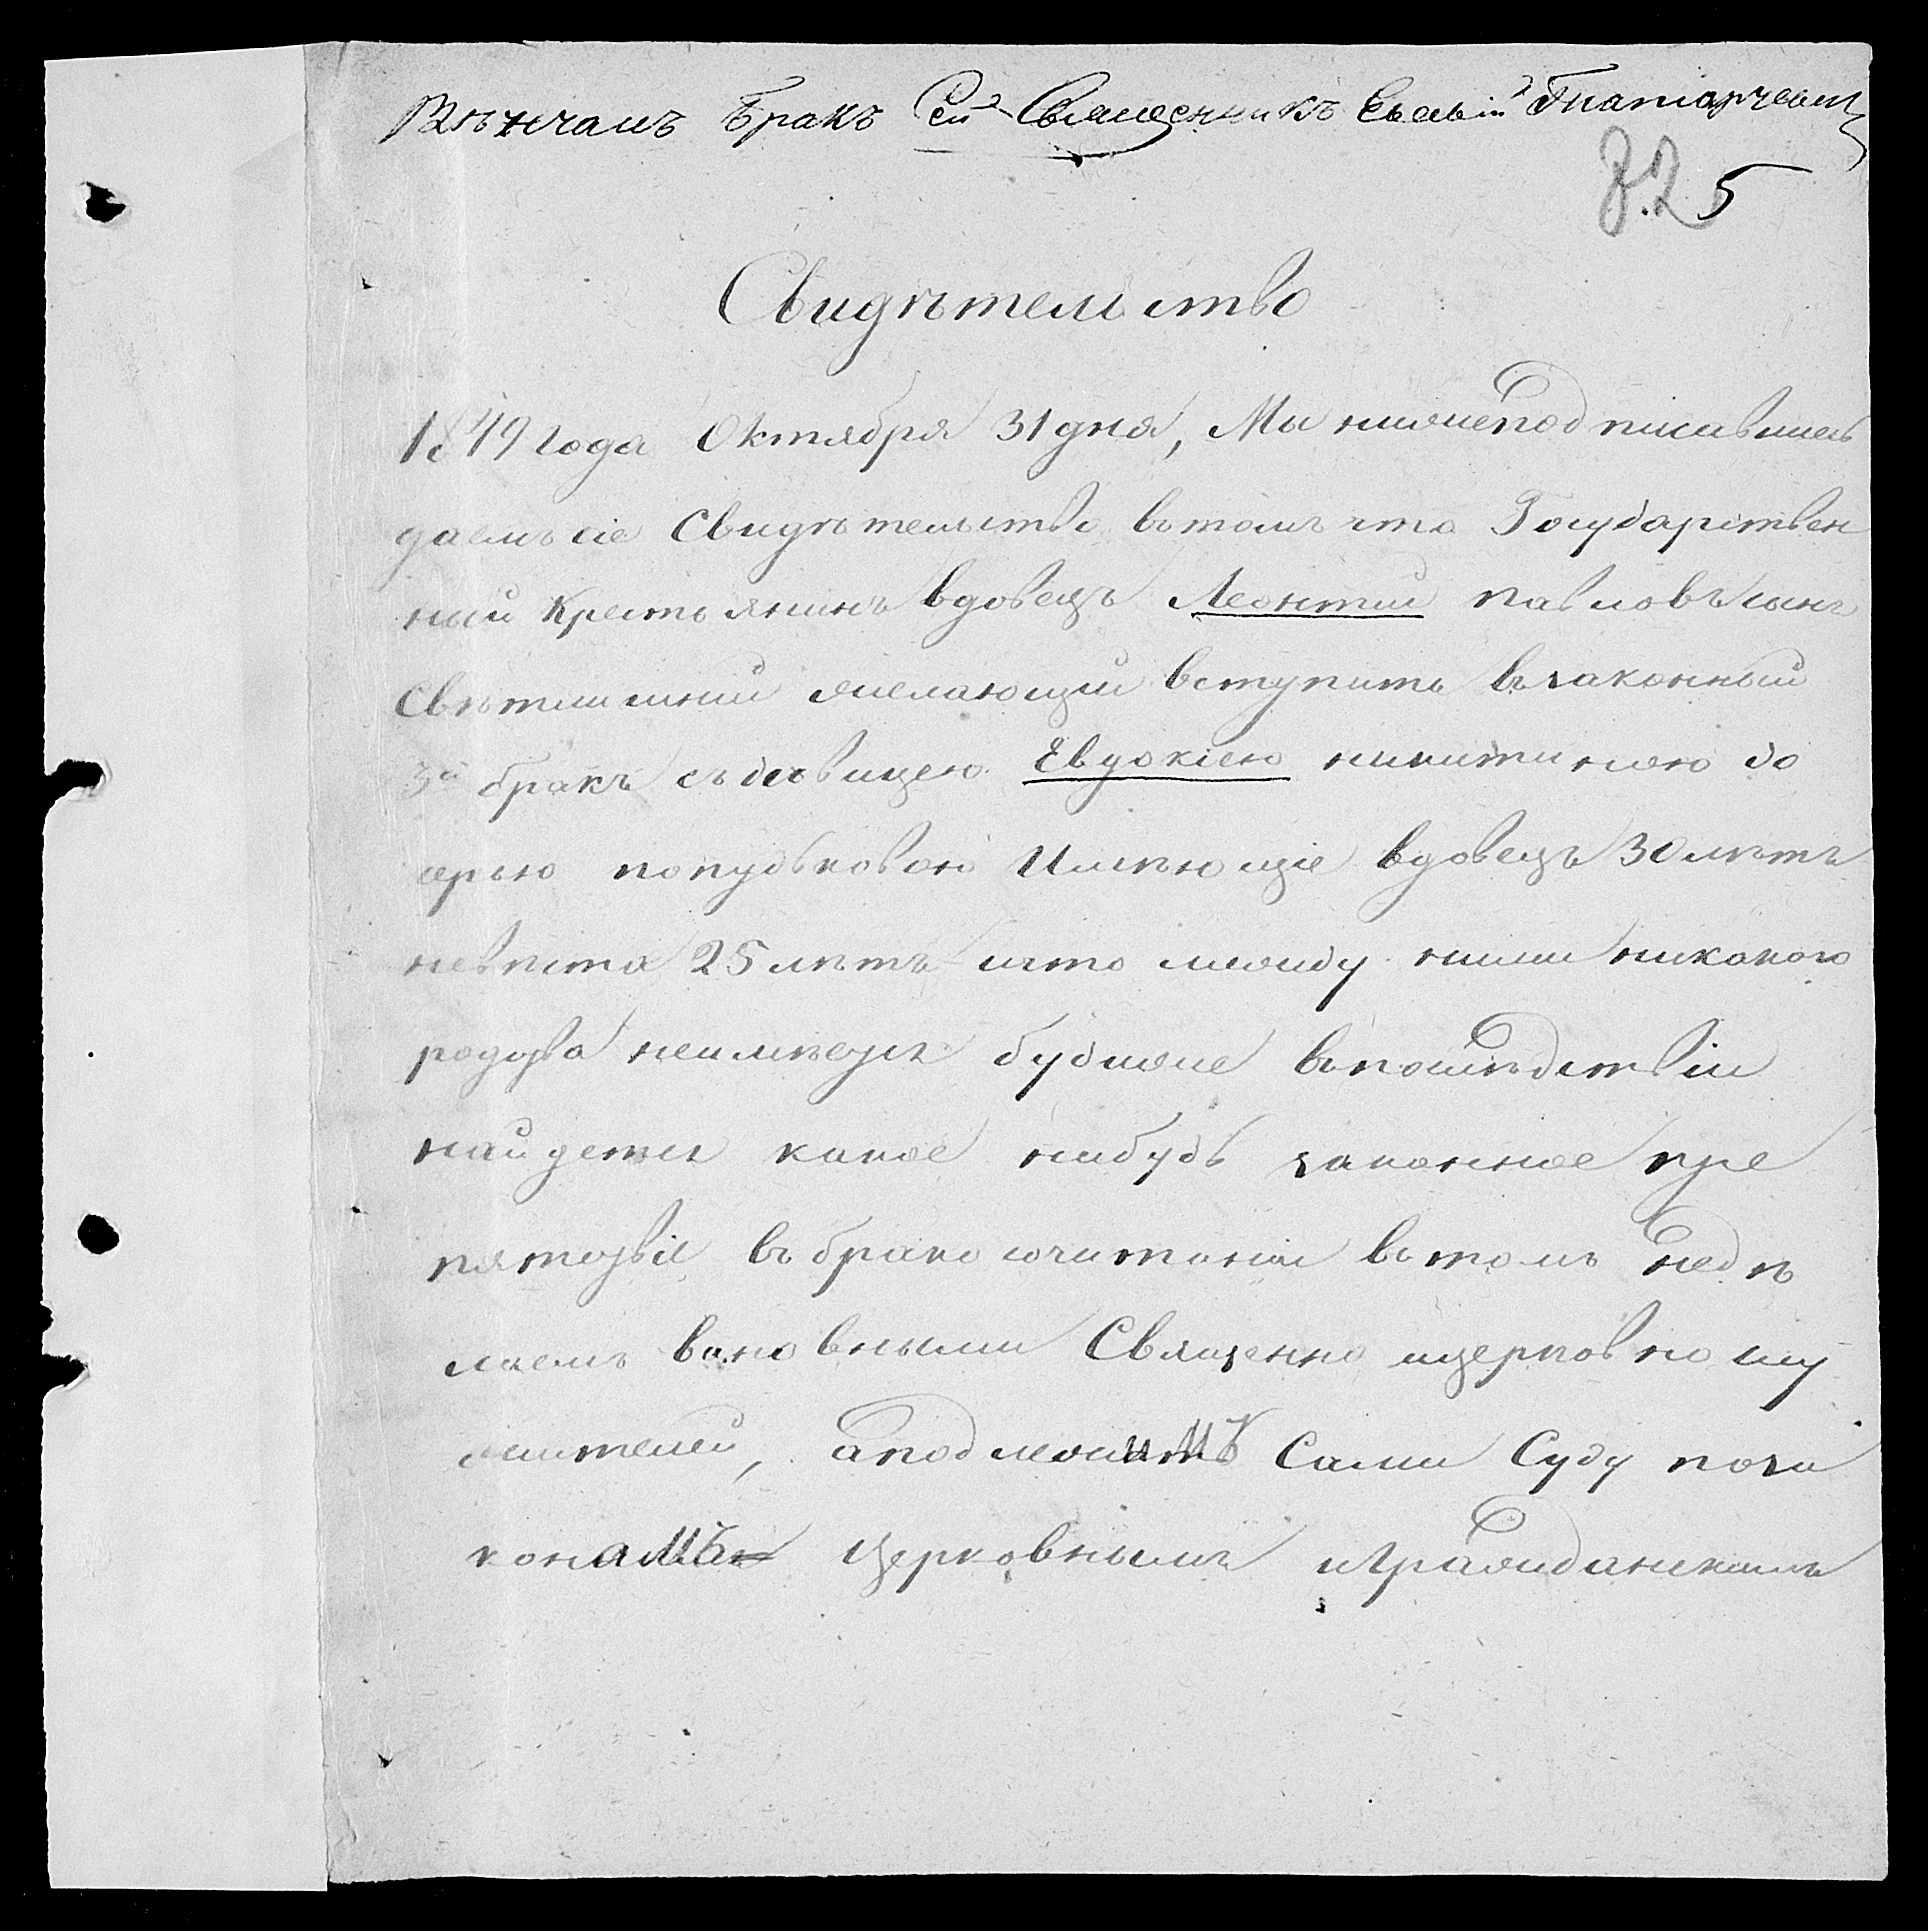 Вѣнчалъ Бракъ Сей Священникъ
32 5
Свидѣтельство
1849 года Октября 31 дня, Мы нижеподписавшиесь
даемъ сіе Свидѣтельство въ томъ что Государствен
ный Крестьянинъ вдовецъ Леонтий Павловъ сынъ
желающий вступить въ законный
3й бракъ съ девицею Евдокіею никитиною до
черью Имѣющіе вдовецъ 30 лѣтъ
невѣста 25 лѣтъ и что между ними никакого
родства неимѣется будиже въ послѣдствіи
найдется какое нибудь законное пре
пятствіе въ бракосочитаніи въ томъ недѣ
лаемъ виновными Священно ицерковно слу
жителей, аподлежимъ Сами Суду поза
конамъ Церковнымъ играждански​мъ